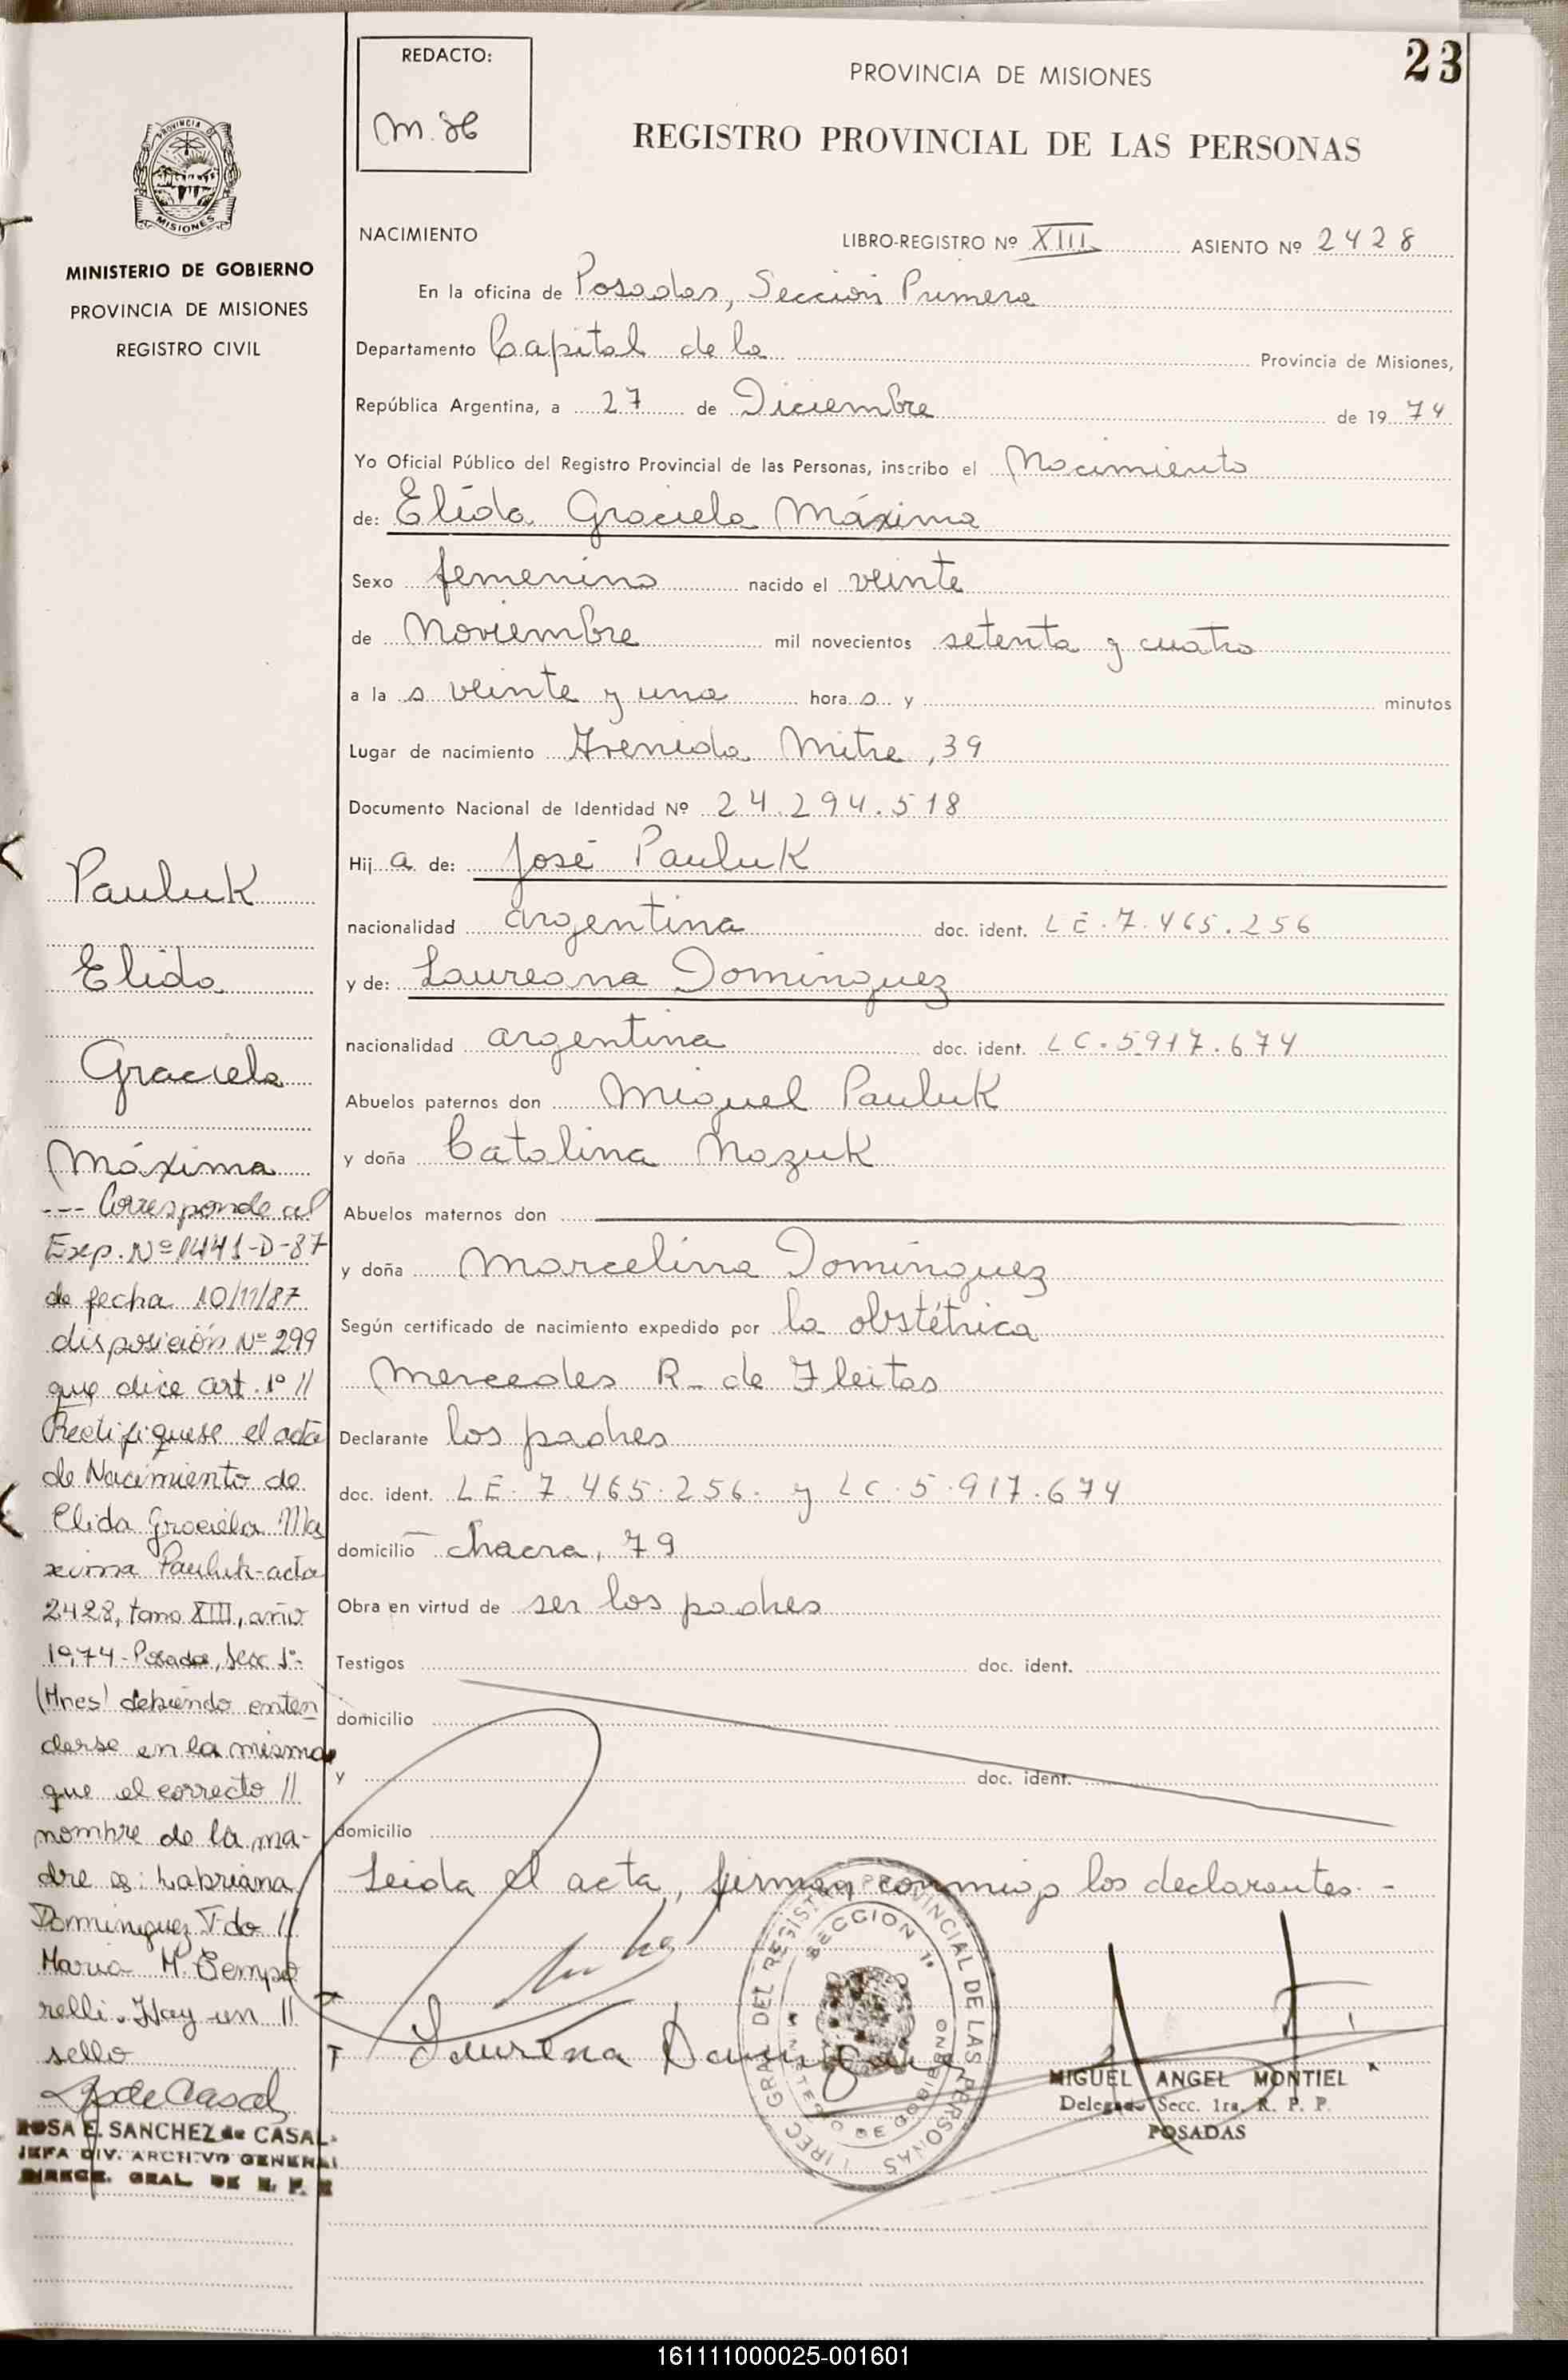 23
REDACTO:
PROVINCIA DE MISIONES
REGISTRO PROVINCIAL DE LAS PERSONAS
PROVINCIA DE
MISIONES
MINISTERIO DE GOBIERNO
PROVINCIA DE MISIONES
REGISTRO CIVIL
NACIMIENTO LIBRO-REGISTRO Nº XIII ASIENTO Nº 2428
En la oficina de Posadas, Sección Primera
Departamento Capital de la Provincia de Misiones,
República Argentina, a 27 de Diciembre de 19 74
Yo Oficial Público del Registro Provincial de las Personas, inscribo el Nacimiento
de: Elida Graciela Máxima
Sexo femenino nacido el veinte
de Noviembre mil novecientos setenta y cuatro
a la s veinte y una hora s y minutos
Lugar de nacimiento Avenida Mitre, 39
Documento Nacional de Identidad Nº 24.294.518
Hij a de: José Pauluk
nacionalidad argentina doc. ident. LE. 7.465.256
y de: Laureana Dominguez
nacionalidad argentina doc. ident. LC. 5917.674
Abuelos paternos don Miguel Pauluk
y doña Catalina Nazuk
Abuelos maternos don
y doña Marcelina Dominguez
Según certificado de nacimiento expedido por la obstétrica
Mercedes R. de Fleitas
Declarante los padres
doc. ident. LE. 7.465.256. y LC. 5.917.674
domicilio chacra, 79
Obra en virtud de ser los padres
Testigos doc. ident.
domicilio
y doc. ident.
domicilio
Leida el acta, firman conmigo los declarantes.-
Dominguez
DIREC. GRAL DEL REGISTRO PROVINCIAL DE LAS PERSONAS
SECCION 1ª
MINISTERIO DE GOBIERNO
MIGUEL ANGEL MONTIEL
Delegado Secc. 1ra. R. P. P.
POSADAS
Pauluk
Elida
Graciela
Máxima
--- Corresponde al
Exp. Nº 1441-D-87
de fecha 10/11/87
disposición Nº 299
que dice art. 1º //
Rectifiquese el acta
de Nacimiento de
Elida Graciela Ma
xima Pauluk-acta
2428, tomo XIII, año
1974-Posadas, Secc 1ª-
(Mnes) debiendo enten
derse en la misma
que el correcto //
nombre de la ma-
dre es: Labriana
Dominguez Fdo //
Maria M. Tempo
relli. Hay un //
sello
ROSA E. SANCHEZ de CASAL
JEFA DIV. ARCHIVO GENERAL
DIRECC. GRAL DE R. P. P.
161111000025-001601